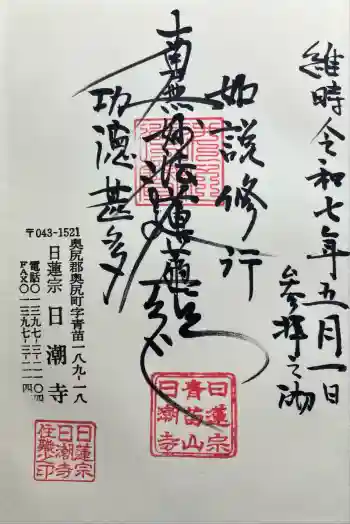 維時令和七年五月一日
参拝之砌
如説修行
南無妙法蓮華経
功徳甚多
〒043-1521
奥尻郡奥尻町字青苗一八九-一八
日蓮宗 日潮寺
電話〇一三九七-三-二一〇四
FAX〇一三九七-三-二一一四
日蓮宗
青苗山
日潮寺
日蓮宗
日潮寺